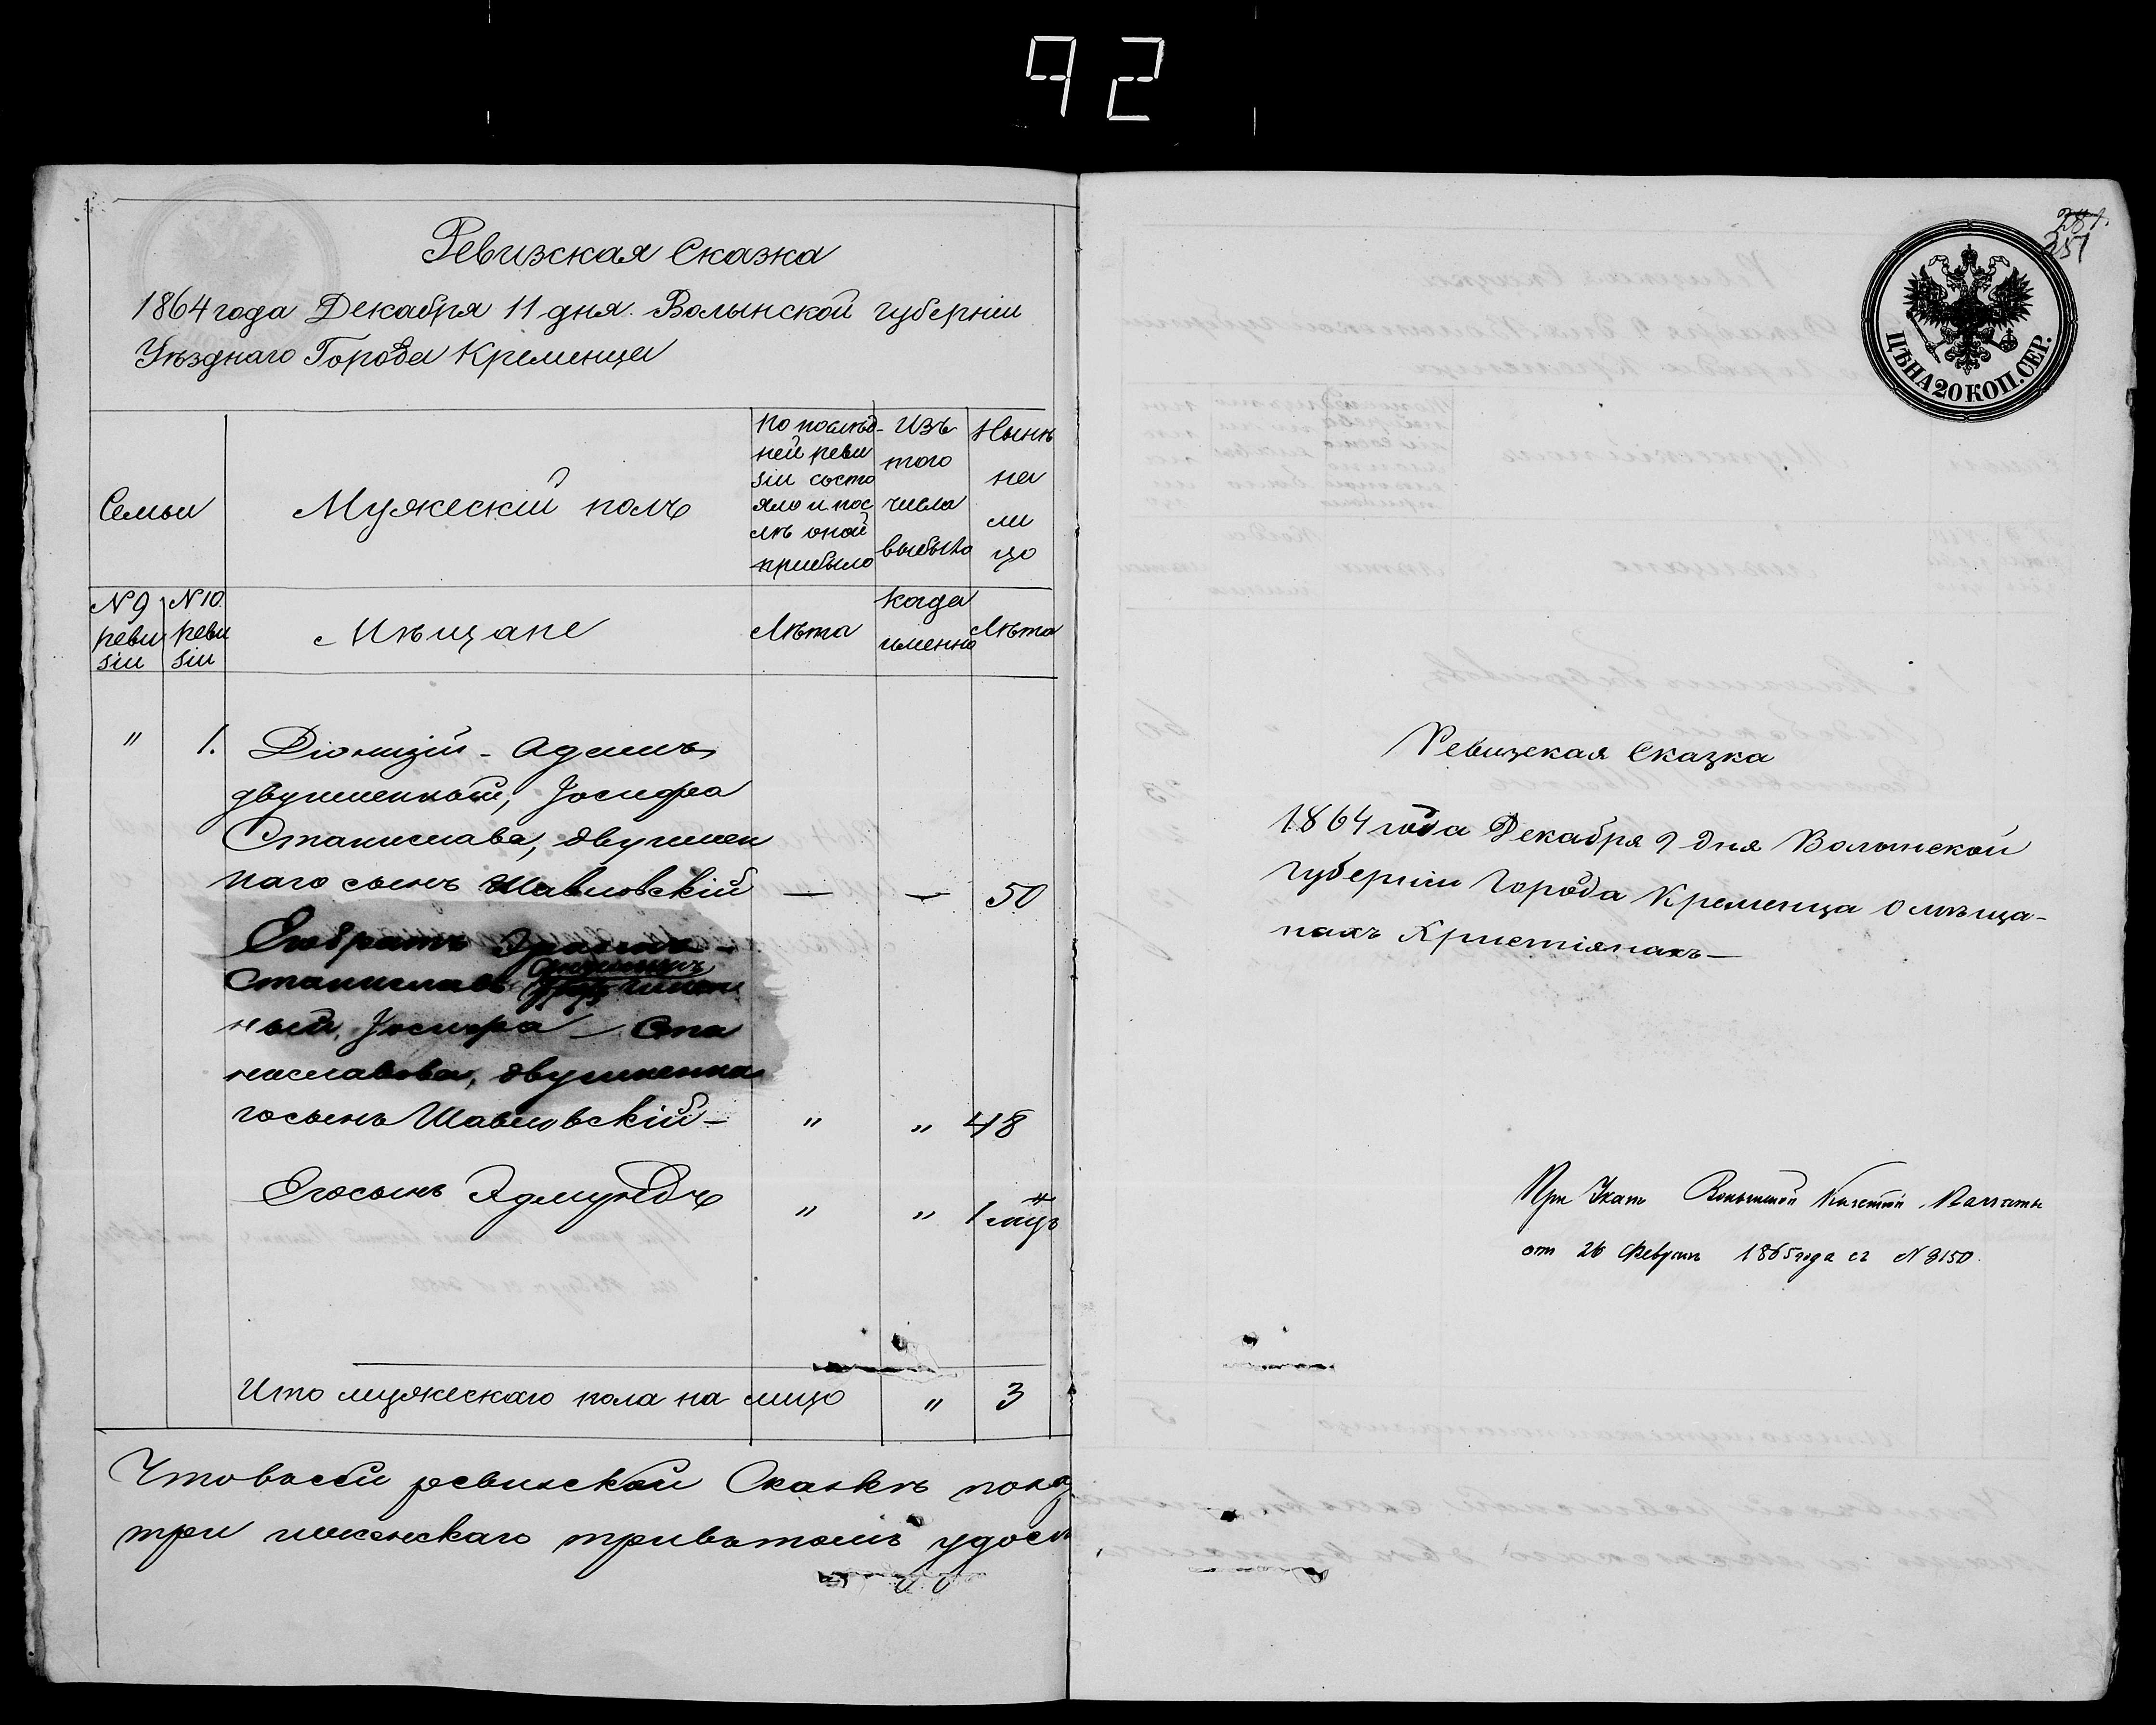 92
Ревизская Сказка
1864 года Декабря 11 дня. Волынской губерніи
Уѣзднаго Города Кременца
Семьи
Мужескій полъ
По послѣд-
ней реви
зіи состо
яло и пос
лѣ оной
прибыло
Изъ
того
числа
выбыло
Нынѣ
на
ли
цо
N 9
реви
зіи
N 10
реви
зіи
Мѣщане
Лѣта
када
именно
Лѣта
" 1. Діонизій - Адамъ
двуименный, Іосифа
Станислава, двуимен
наго сынъ Шавловскій — — 50
Его братъ
Станиславъ
ный, Іосифа - Ста
ниславова, двуименна
го сынъ Шавловскій - " " 48
Его сынъ Эдмундъ " " 1
Ито мужескаго пола на лицо " 3
Что в сей ревиской Сказкѣ
три женскаго три в томъ
281.
251
ЦѢНА 20 КОП. СЕР.
Ревизская Сказка
1864 года Декабря 9 дня Волынской
Губерніи Города Кременца о мѣща-
нахъ Христіянахъ —
При Указѣ Волынской Казенной Палаты
от 26 Февраля 1865 года за N 3150.